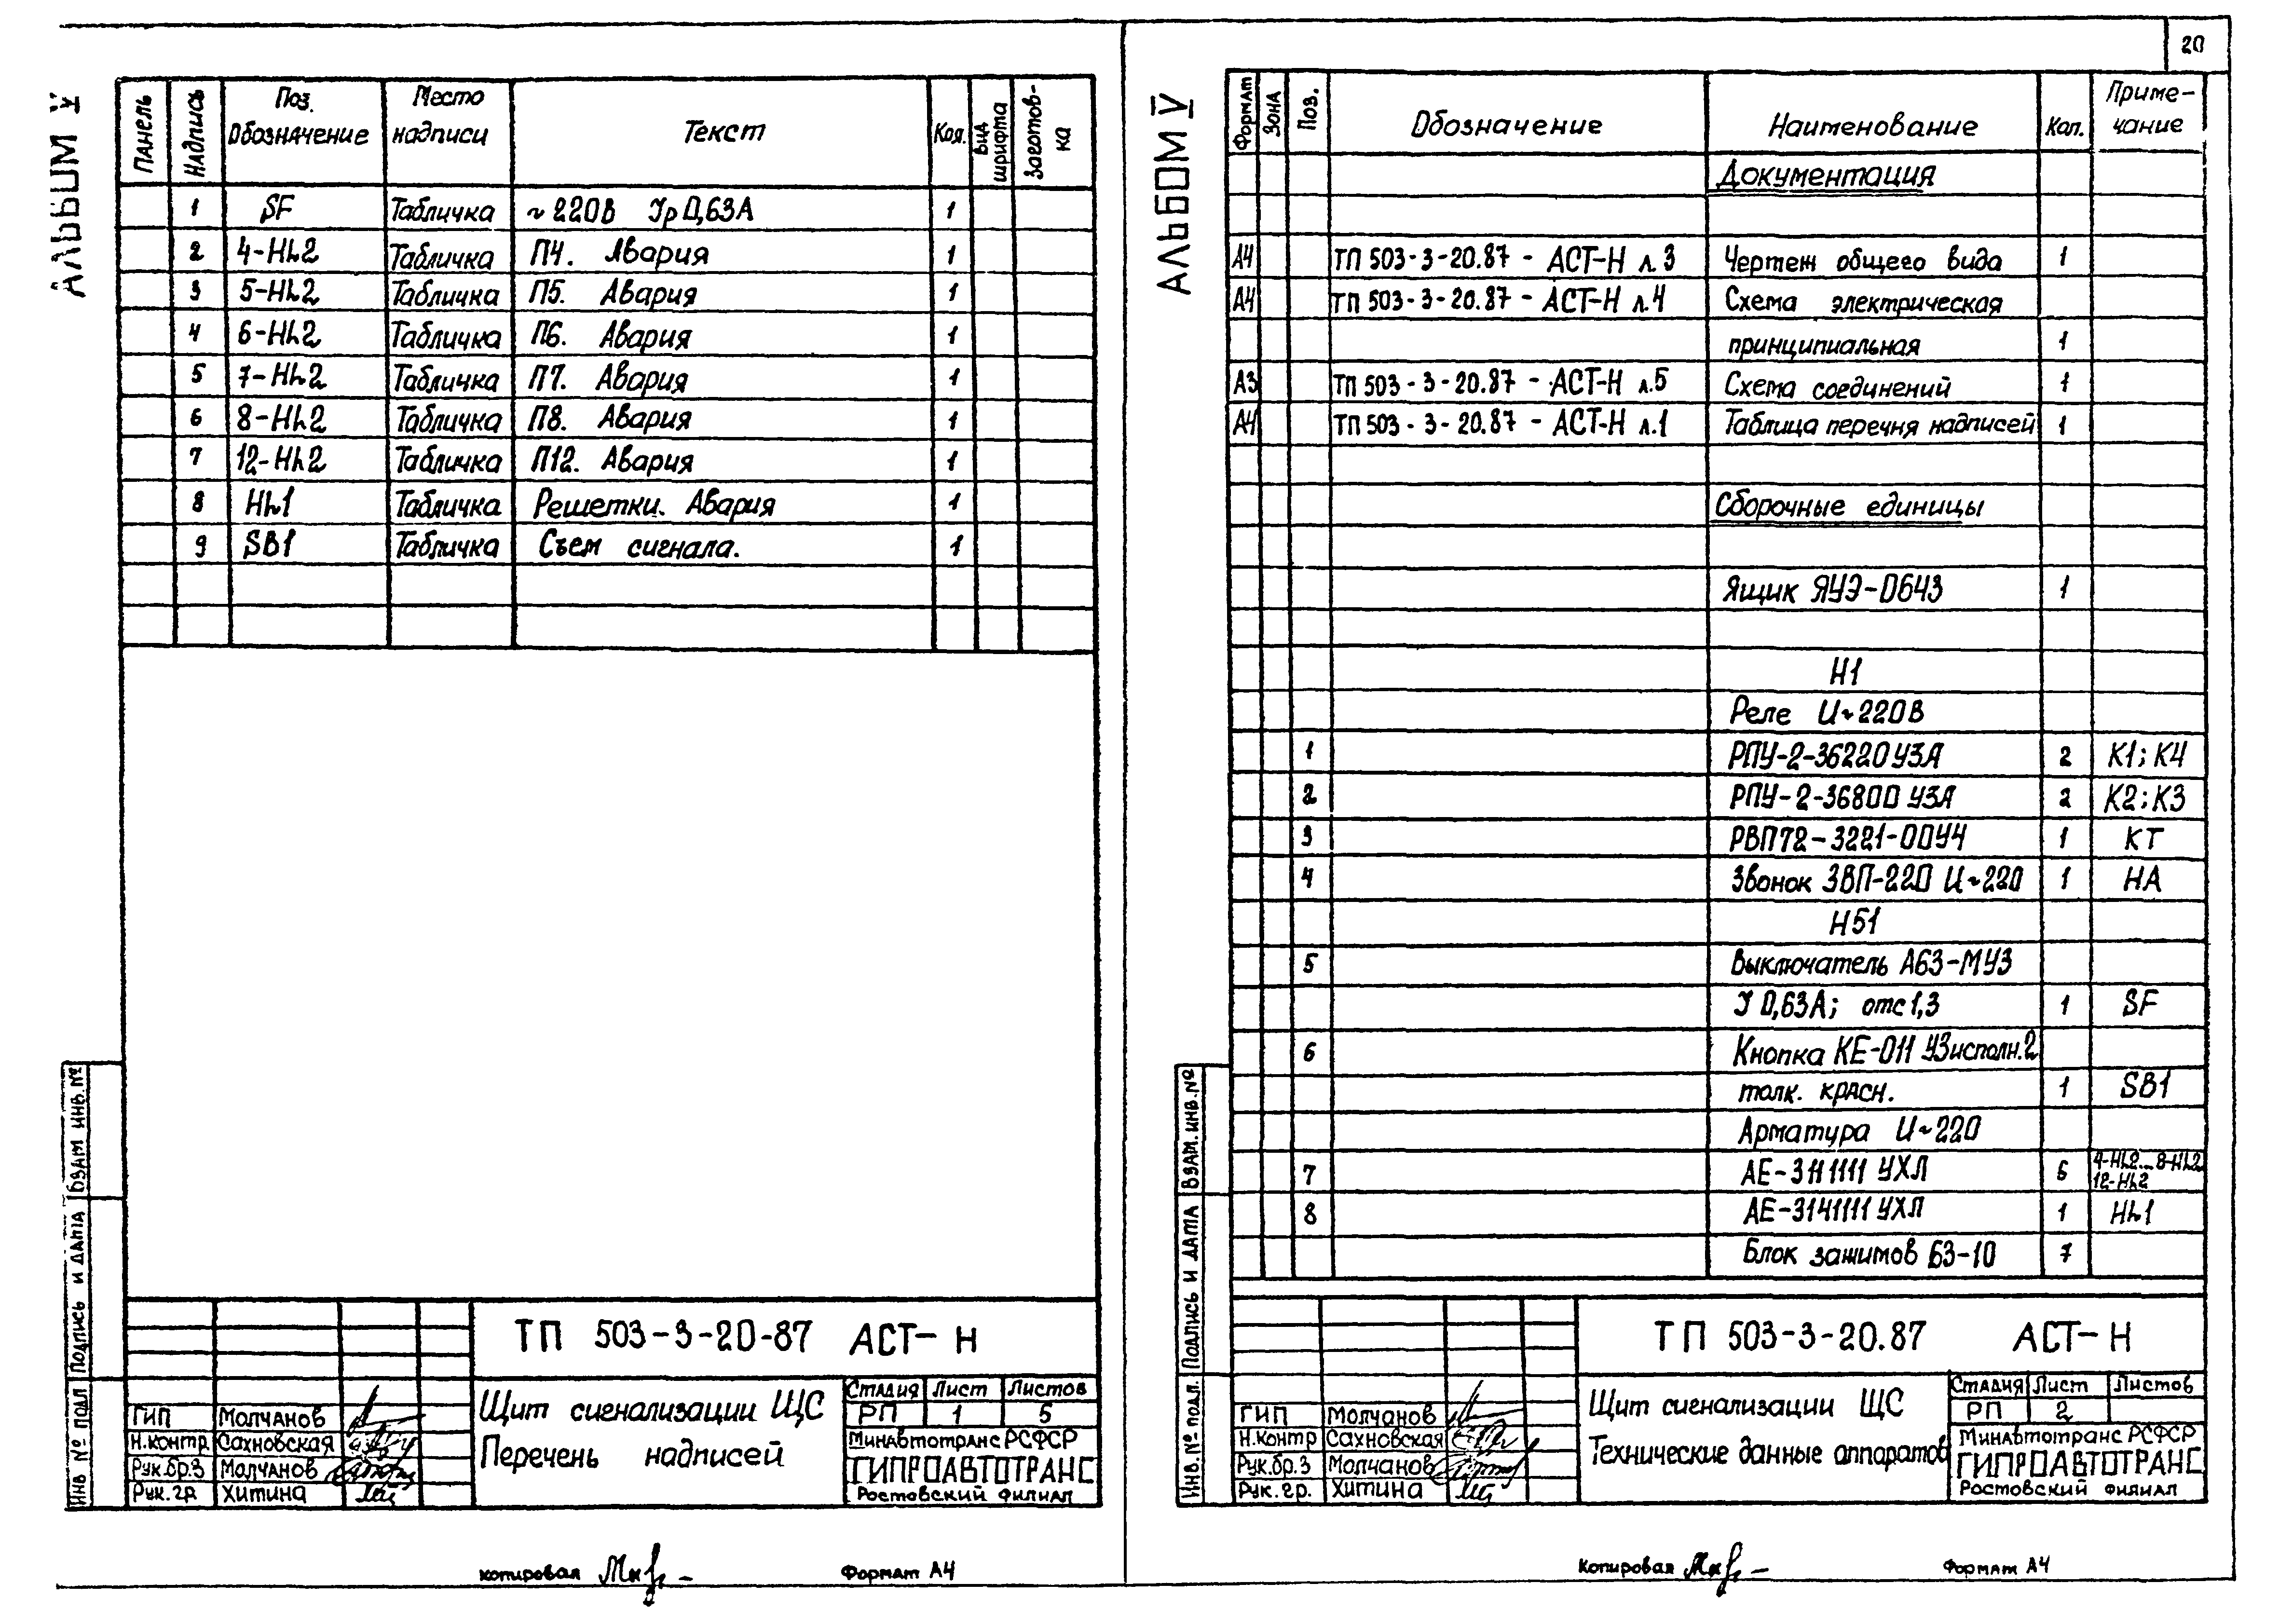 20
АЛЬБОМ V
Панель Надпись Поз. Обозначение Место надписи Текст Кол. Вид шрифта Заготовка
1 SF Табличка ~220В Iр 0,63А 1
2 4-HL2 Табличка П4. Авария 1
3 5-HL2 Табличка П5. Авария 1
4 6-HL2 Табличка П6. Авария 1
5 7-HL2 Табличка П7. Авария 1
6 8-HL2 Табличка П8. Авария 1
7 12-HL2 Табличка П12. Авария 1
8 HL1 Табличка Решетки. Авария 1
9 SB1 Табличка Съем сигнала. 1
Взам. инв. №
Подпись и дата
Инв № подл
ТП 503-3-20-87 АСТ-Н
Щит сигнализации ЩС
Перечень надписей
Стадия Лист Листов
РП 1 5
Минавтотранс РСФСР
ГИПРОАВТОТРАНС
Ростовский филиал
ГИП Молчанов
Н.контр Сахновская
Рук.бр.3 Молчанов
Рук.гр Хитина
Копировал
Формат А4
АЛЬБОМ V
Формат Зона Поз. Обозначение Наименование Кол. Примечание
Документация
А4 ТП 503-3-20.87 - АСТ-Н л.3 Чертеж общего вида 1
А4 ТП 503-3-20.87 - АСТ-Н л.4 Схема электрическая
принципиальная 1
А3 ТП 503-3-20.87 - АСТ-Н л.5 Схема соединений 1
А4 ТП 503-3-20.87 - АСТ-Н л.1 Таблица перечня надписей 1
Сборочные единицы
Ящик ЯУЭ-0643 1
Н1
Реле U~220В
1 РПУ-2-36220У3А 2 К1; К4
2 РПУ-2-36800 У3А 2 К2; К3
3 РВП72-3221-00У4 1 КТ
4 Звонок ЗВП-220 U~220 1 НА
Н51
5 Выключатель А63-МУ3
I 0,63А; отс 1,3 1 SF
6 Кнопка КЕ-011 У3 исполн.2
толк. красн. 1 SB1
Арматура U~220
7 АЕ-3111111 УХЛ 6 4-HL2...8-HL2
12-HL2
8 АЕ-3141111 УХЛ 1 HL1
Блок зажимов БЗ-10 7
Взам. инв. №
Подпись и дата
Инв. № подл.
ТП 503-3-20.87 АСТ-Н
Щит сигнализации ЩС
Технические данные аппаратов
Стадия Лист Листов
РП 2
Минавтотранс РСФСР
ГИПРОАВТОТРАНС
Ростовский филиал
ГИП Молчанов
Н.контр Сахновская
Рук.бр.3 Молчанов
Рук.гр. Хитина
Копировал
Формат А4